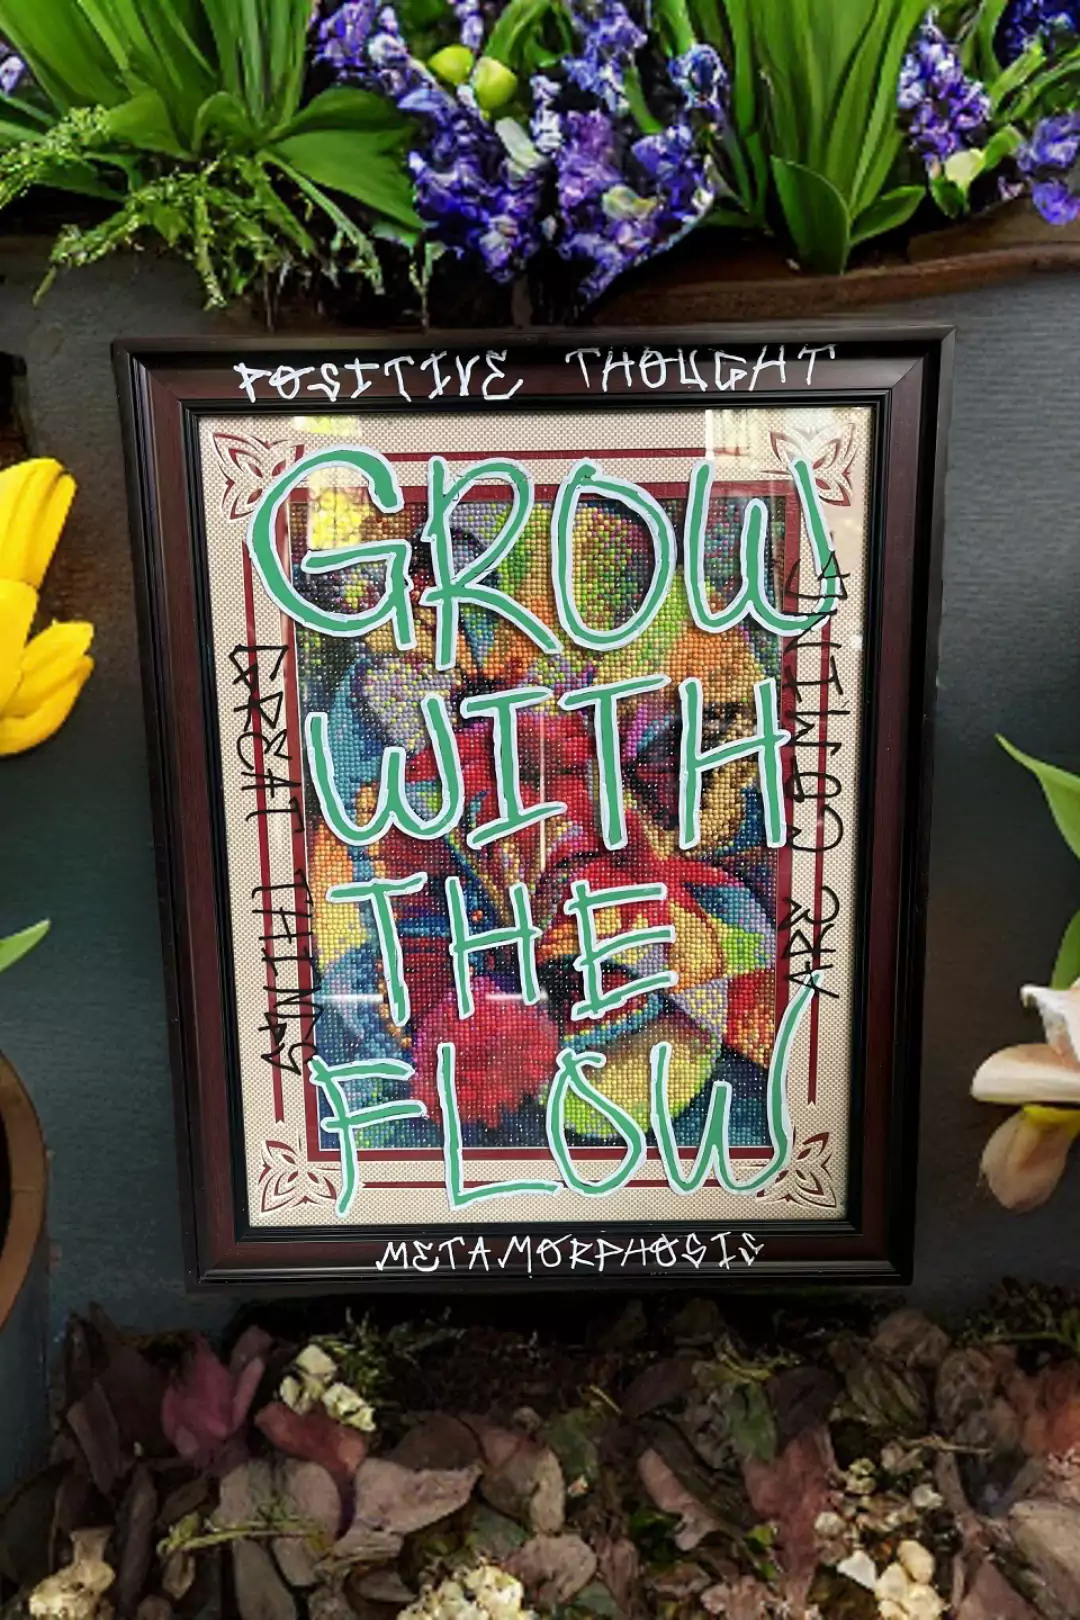 POSITIVE THOUGHT
GROW
WITH
THE
FLOW
GREAT THINGS
ARE COMING
METAMORPHOSIS